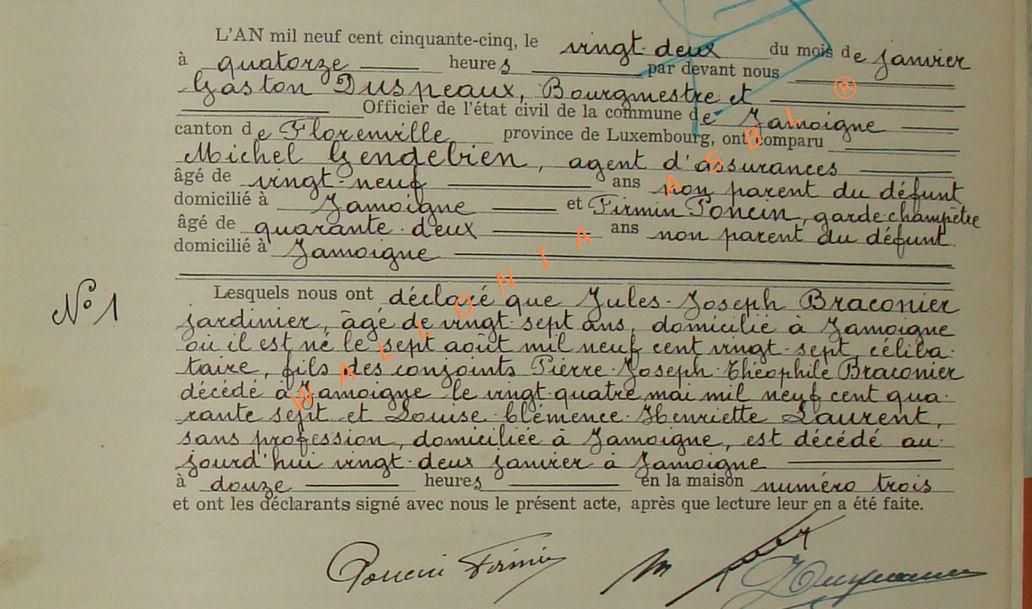 L'AN mil neuf cent cinquante-cinq, le vingt-deux du mois de janvier
à quatorze heures par devant nous
Gaston Duspeaux, Bourgmestre et
Officier de l'état civil de la commune de Jamoigne
canton de Florenville province de Luxembourg, ont comparu
Michel Gendebien, agent d'assurances
âgé de vingt-neuf ans non parent du défunt
domicilié à Jamoigne et Firmin Poncin, garde champêtre
âgé de quarante-deux ans non parent du défunt
domicilié à Jamoigne
N° 1
Lesquels nous ont déclaré que Jules-Joseph Braconier
jardinier, âgé de vingt-sept ans, domicilié à Jamoigne
où il est né le sept août mil neuf cent vingt-sept, céliba-
taire, fils des conjoints Pierre-Joseph-Théophile Braconier
décédé à Jamoigne le vingt-quatre mai mil neuf cent qua-
rante sept et Louise-Clémence-Henriette Laurent,
sans profession, domiciliée à Jamoigne, est décédé au-
jourd'hui vingt-deux janvier à Jamoigne
à douze heures en la maison numéro trois
et ont les déclarants signé avec nous le présent acte, après que lecture leur en a été faite.
Poncin Firmin
WALLONIA ASBL ®